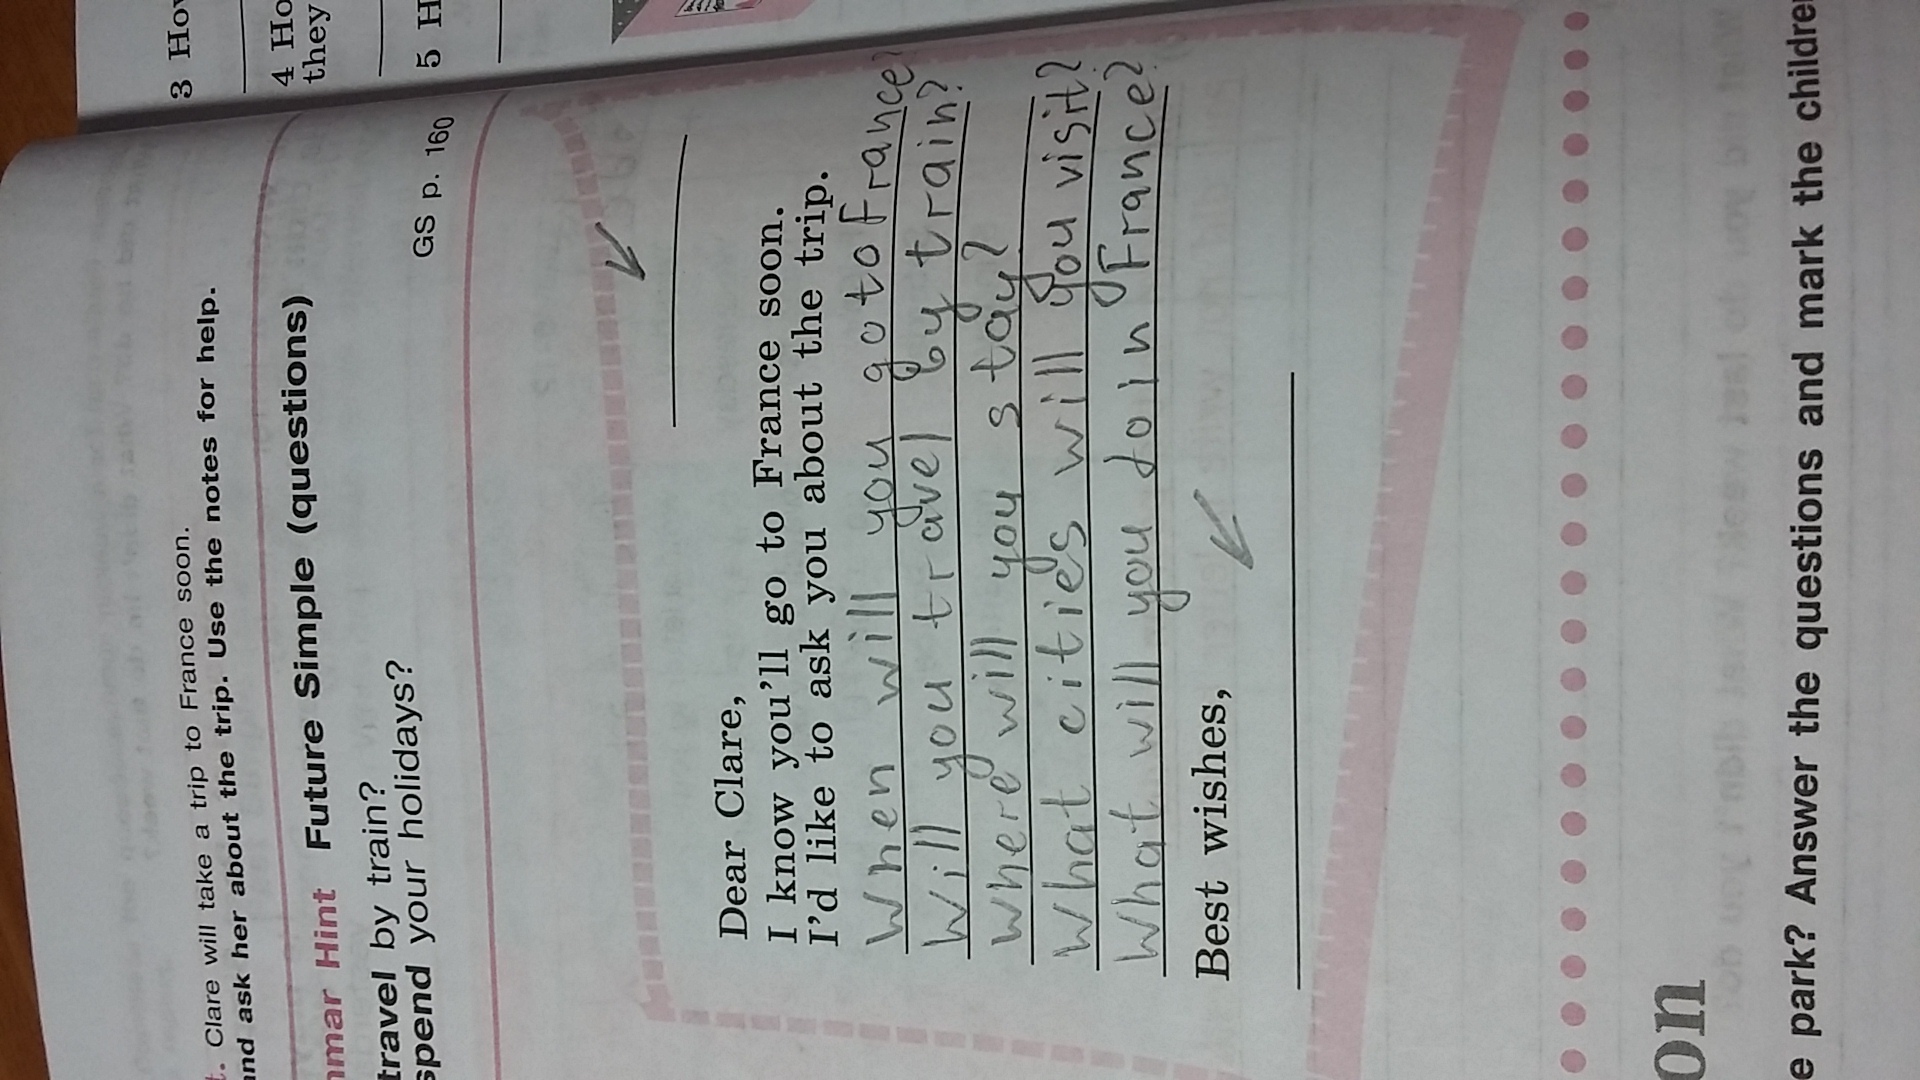 3 Hov
4 Ho
they
5 H
t. Clare will take a trip to France soon.
nd ask her about the trip. Use the notes for help.
mar Hint Future Simple (questions)
travel by train?
spend your holidays?
GS p. 160
Dear Clare,
I know you'll go to France soon.
I'd like to ask you about the trip.
When will you go to France?
Will you travel by train?
Where will you stay?
What cities will you visit?
What will you do in France?
Best wishes,
on
e park? Answer the questions and mark the childre